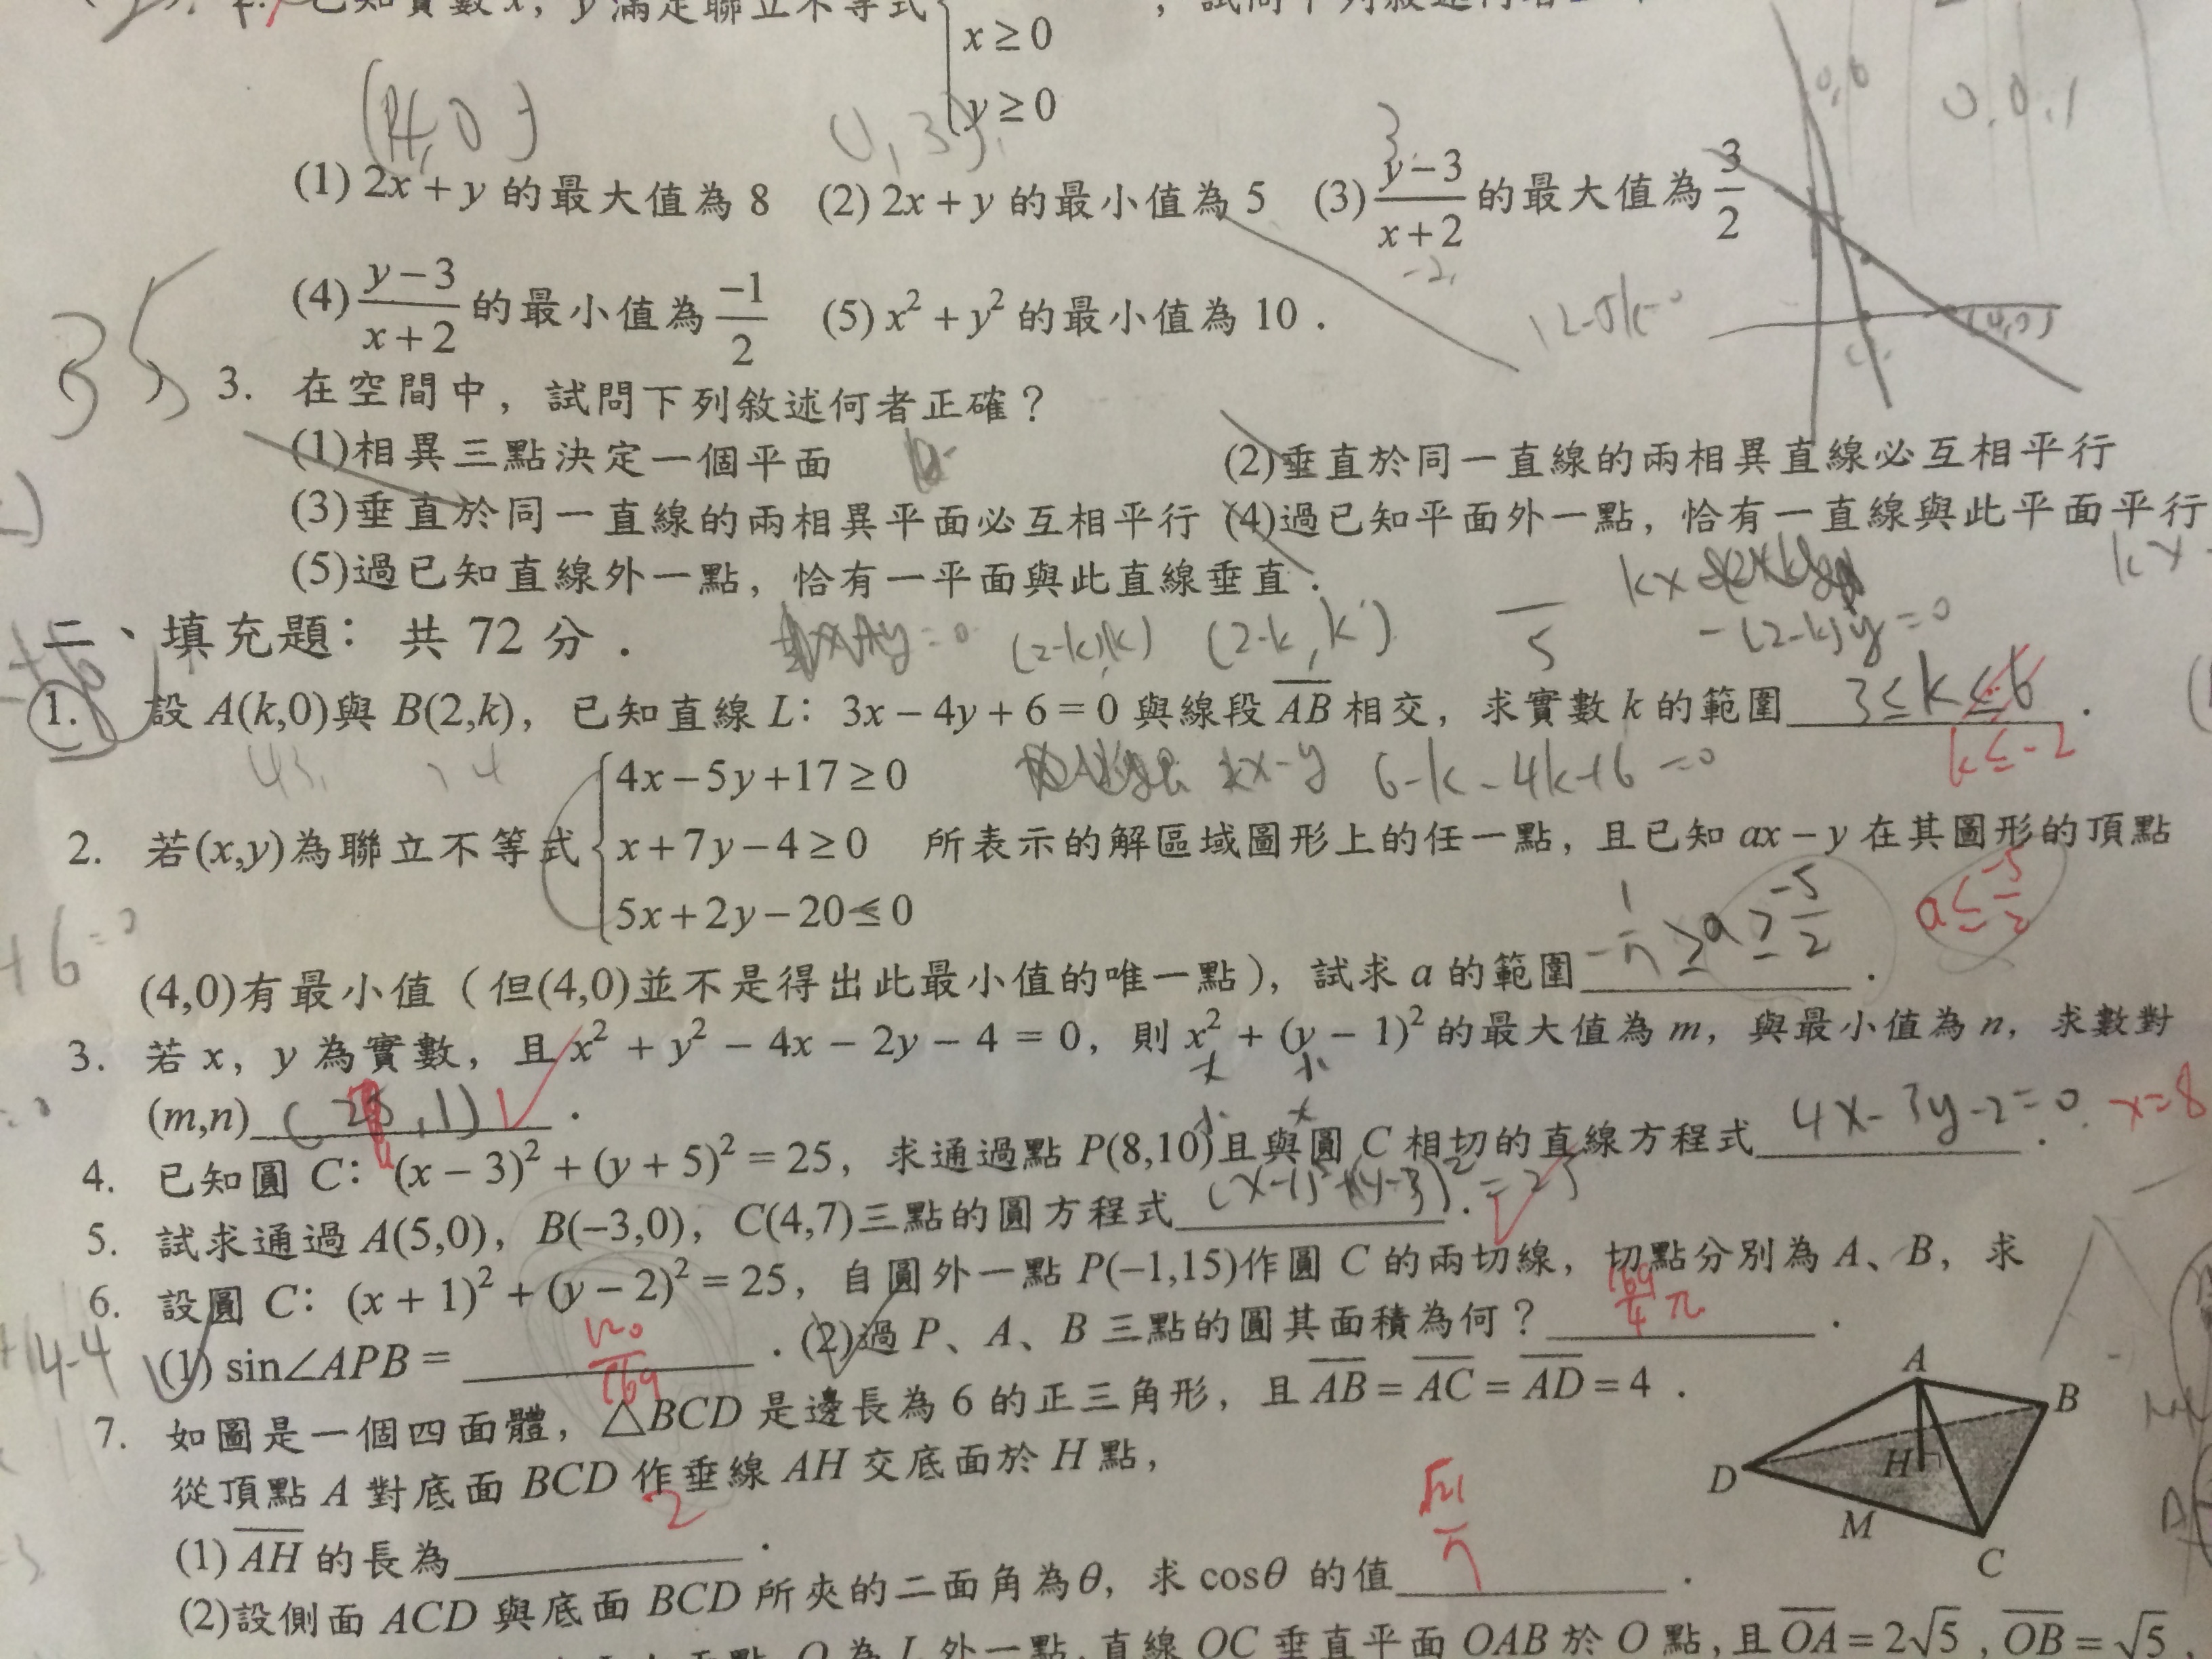 已知實數 x, y 滿足聯立不等式
x ≥ 0
y ≥ 0
(1) 2x + y 的最大值為 8 (2) 2x + y 的最小值為 5 (3) (y−3)/(x+2) 的最大值為 3/2
(4) (y−3)/(x+2) 的最小值為 −1/2 (5) x² + y² 的最小值為 10．
3. 在空間中，試問下列敘述何者正確？
(1)相異三點決定一個平面 (2)垂直於同一直線的兩相異直線必互相平行
(3)垂直於同一直線的兩相異平面必互相平行 (4)過已知平面外一點，恰有一直線與此平面平行
(5)過已知直線外一點，恰有一平面與此直線垂直．
二、填充題：共 72 分．
(2-k, k) (2-k, k) -(2-k)y=0
1. 設 A(k,0)與 B(2,k)，已知直線 L：3x − 4y + 6 = 0 與線段 AB 相交，求實數 k 的範圍 3≤k≤6．
k≤-2
6-k-4k+6=0
4x−5y+17 ≥ 0
2. 若(x,y)為聯立不等式 x+7y−4 ≥ 0 所表示的解區域圖形上的任一點，且已知 ax − y 在其圖形的頂點
5x+2y−20 ≤ 0
a≤-5/2
(4,0)有最小值（但(4,0)並不是得出此最小值的唯一點），試求 a 的範圍 ≥a≥-5/2．
3. 若 x，y 為實數，且 x² + y² − 4x − 2y − 4 = 0，則 x² + (y − 1)² 的最大值為 m，與最小值為 n，求數對
(m,n) ( 25 ,1)．
4. 已知圓 C：(x − 3)² + (y + 5)² = 25，求通過點 P(8,10)且與圓 C 相切的直線方程式 4x-3y-2=0． x=8
5. 試求通過 A(5,0)，B(−3,0)，C(4,7)三點的圓方程式 (x-1)²+(y-3)²=25．
6. 設圓 C：(x + 1)² + (y − 2)² = 25，自圓外一點 P(−1,15)作圓 C 的兩切線，切點分別為 A、B，求
(1) sin∠APB = 120/169．(2)過 P、A、B 三點的圓其面積為何？ 169/4 π．
7. 如圖是一個四面體，△BCD 是邊長為 6 的正三角形，且 AB = AC = AD = 4．
從頂點 A 對底面 BCD 作垂線 AH 交底面於 H 點，
(1) AH 的長為 2．
(2)設側面 ACD 與底面 BCD 所夾的二面角為θ，求 cosθ 的值 √21/7．
A
B
H
D
M
C
外一點,直線 OC 垂直平面 OAB 於 O 點,且 OA = 2√5 , OB = √5 ,